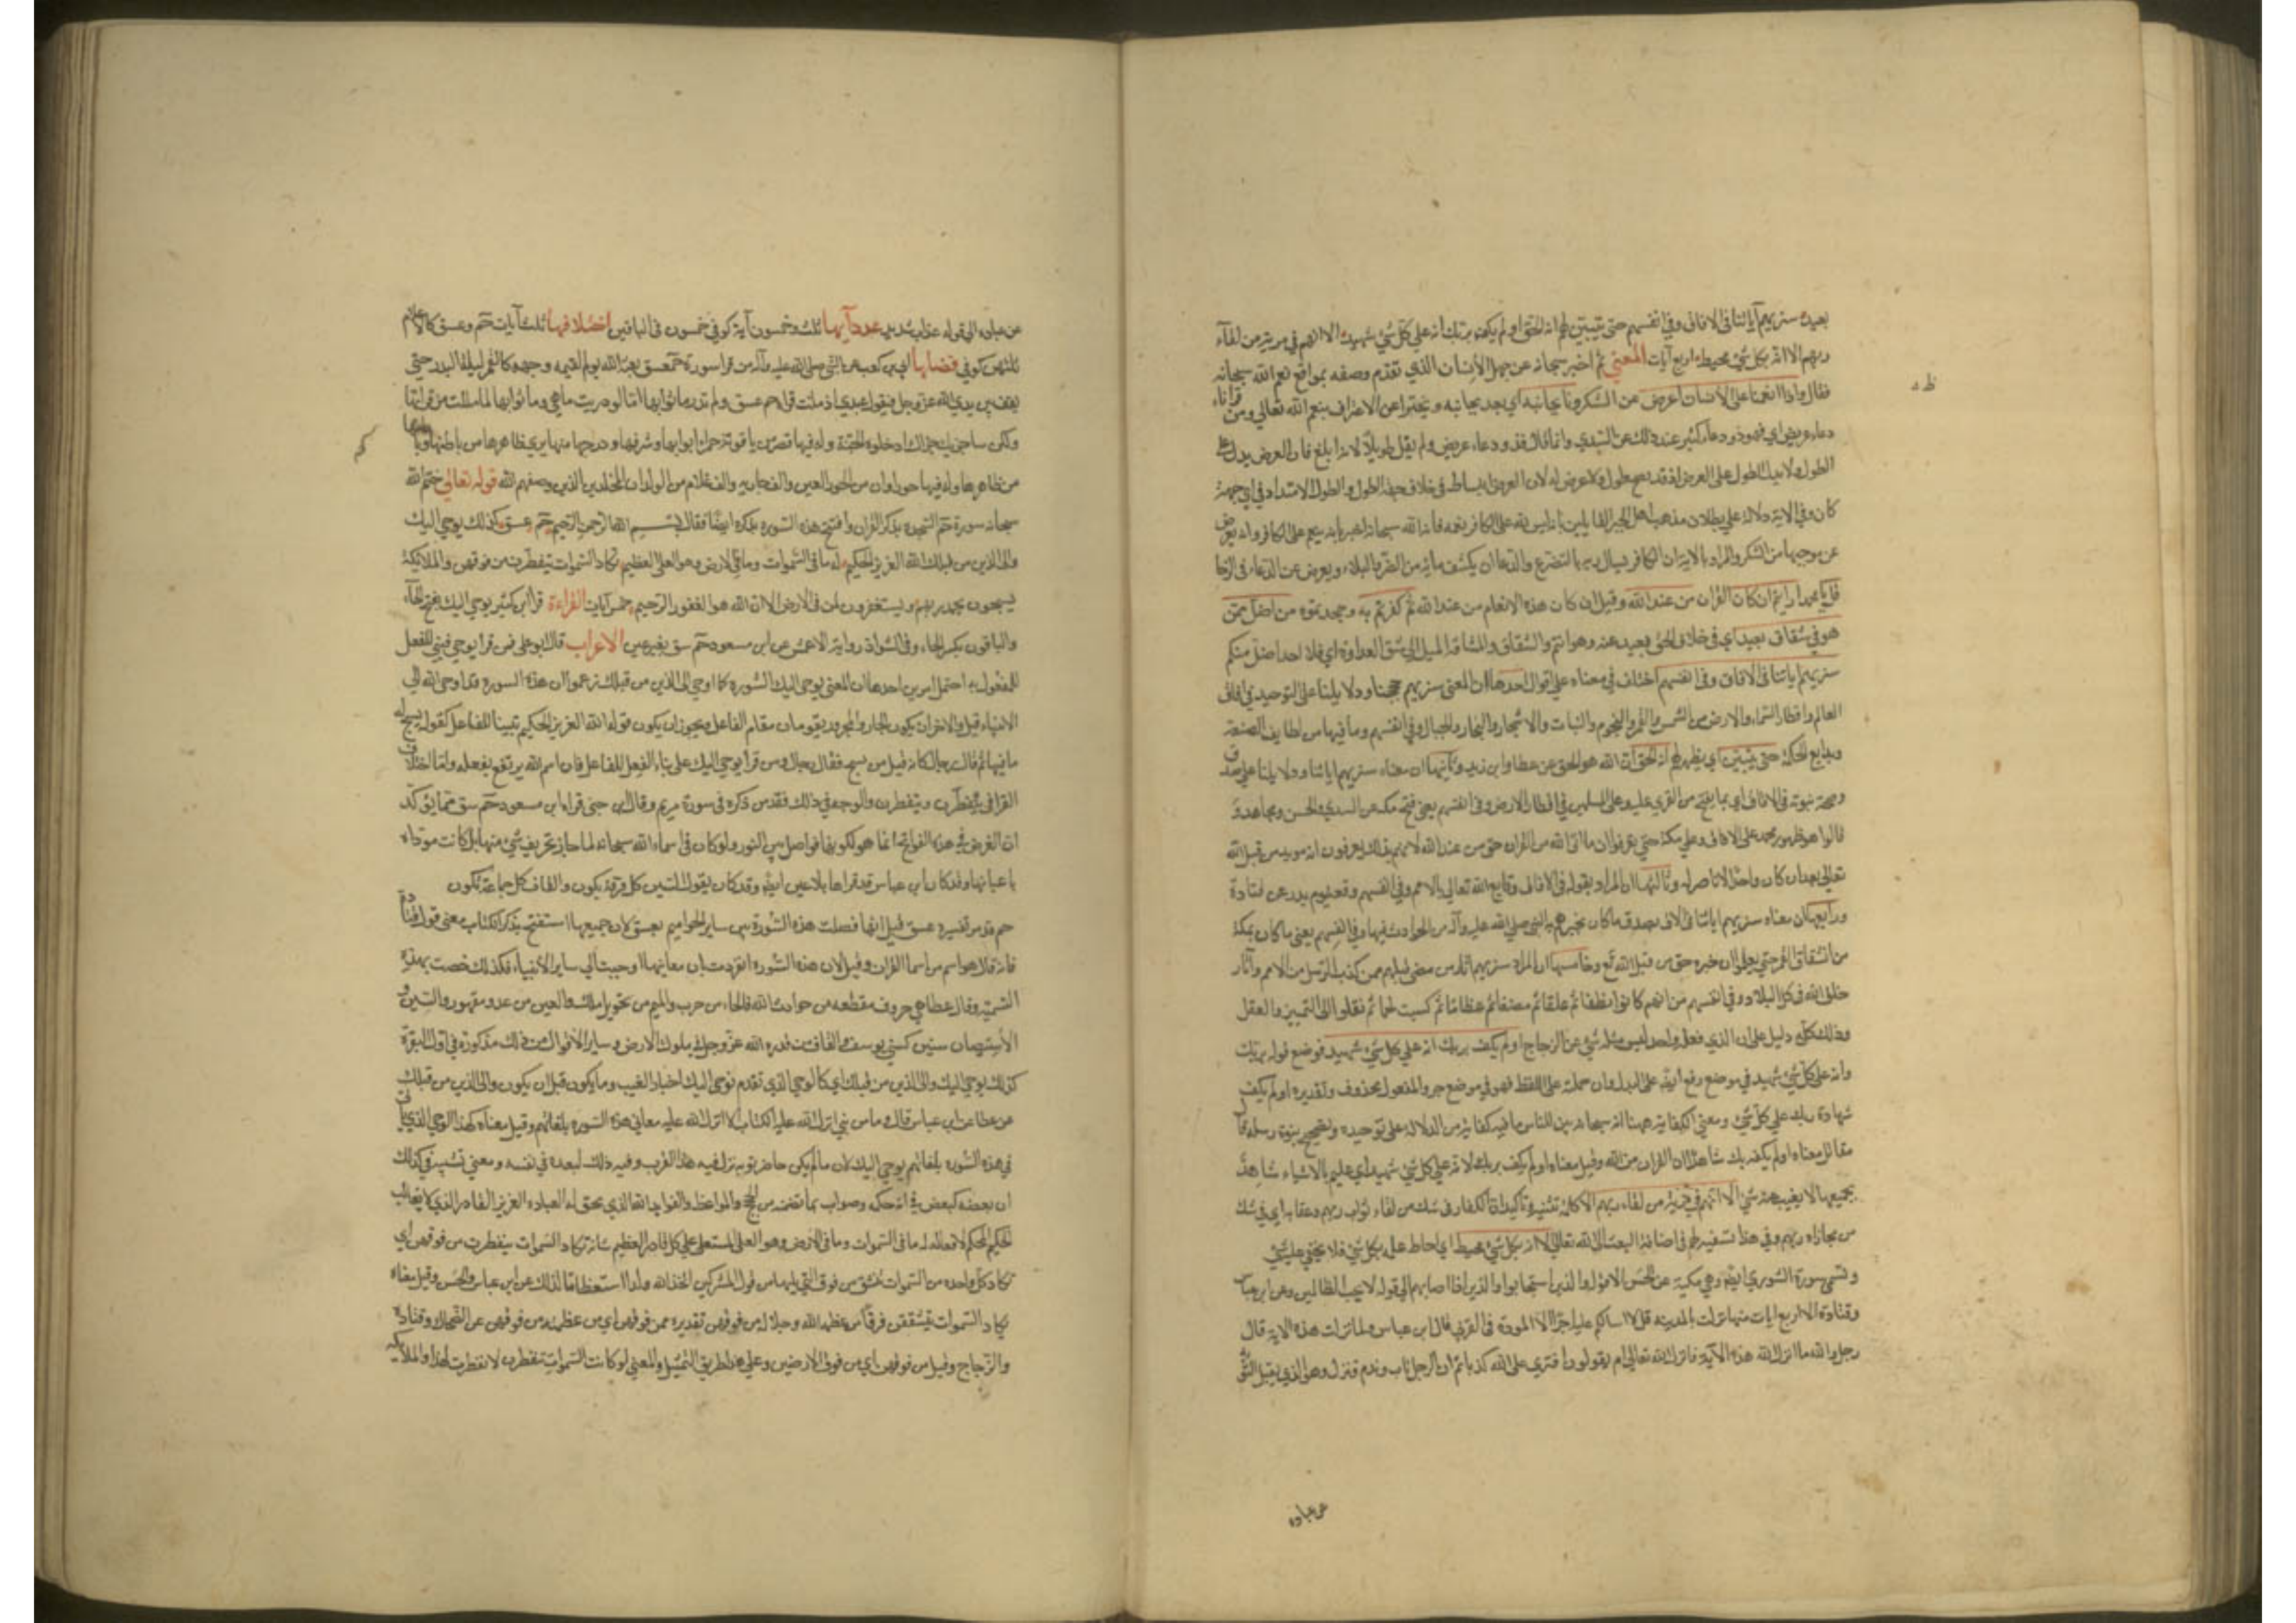 بعيد سنريهم آياتنا في الافاق وفي انفسهم حتى يتبين لهم انه الحق او لم يكف بربك انه على كل شئ شهيد الا انهم في مرية من لقآء
ربهم الا انه بكل شئ محيط اربع آيات المعنى ثم اخبر سبحانه عن جهل الانسان الذي تقدم وصفه بمواقع نعم الله سبحانه
فقال واذا انعمنا على الانسان اعرض عن الشكر ونآ بجانبه اي بعد بجانبه وتجبرا عن الاعتراف بنعم الله تعالى ومن قرأ ناء
دعاء عريض اي فهو ذو دعاء كثير عند ذلك عن السدي وانما قال فذو دعاء عريض ولم يقل طويل لانه ابلغ فان العرض يدل على
الطول ولا يدل الطول على العرض اذ قد يصح طول ولا عرض له لان العرض انبساط في خلاف جهة الطول والطول الامتداد في اي جهة
كان وفي الاية دلالة على بطلان مذهب اهل الجبر القايلين بانه ليس لله على الكافر نعمة فان الله سبحانه اخبر بانه ينعم على الكافر وانه يعرض
عن موجبها من الشكر والمراد بالاية ان الكافر يسال ربه بالتضرع والدعا ان يكشف ما به من الضر والبلاء ويعرض عن الدعاء في الرخا
قل يا محمد ارايتم ان كان القران من عند الله وقيل ان كان هذه الانعام من عند الله ثم كفرتم به وجحدتموه من اضل ممن
هو في شقاق بعيد اي في خلاف للحق بعيد عنه وهو انتم والشقاق والمشاقة الميل الى شق العداوة اي فلا احد اضل منكم
سنريهم اياتنا في الافاق وفي انفسهم اختلف في معناه على اقوال احدها ان المعنى سنريهم حججنا ودلايلنا على التوحيد في افاق
العالم واقطار السماء والارض من الشمس والقمر والنجوم والنبات والاشجار والبحار والجبال وفي انفسهم وما فيها من لطايف الصنعة
وبدايع الحكمة حتى يتبين اي يظهر لهم انه الحق ان الله هو الحق عن عطا وابن زيد وثانيها ان معناه سنريهم اياتنا ودلايلنا على صدق
وصحة نبوته في الافاق اي بما يفتح من القرى عليه وعلى المسلمين في اقطار الارض وفي انفسهم يعني فتح مكة عن السدي والحسن ومجاهد و
قالوا هو ظهور محمد على الافاق وعلى مكة حتى يعرفوا ان ما اتى الله من القران حق من عند الله لانهم بذلك يعرفون انه مويد من قبل الله
تعالى بعد ان كان واحدا لا ناصر له وثالثها ان المراد بقوله في الافاق وقايع الله تعالى بالامم وفي انفسهم وقعة يوم بدر عن قتادة
ورابعها ان معناه سنريهم اياتنا في الافاق بصدق ما كان يخبرهم به النبي صلى الله عليه وآله من الحوادث فيها وفي انفسهم يعني ما كان بمكة
من انشقاق القمر حتى يعلموا ان خبره حق من قبل الله تع وخامسها ان المراد سنريهم اثار من مضى قبلهم ممن كذب الرسل من الامم وآثار
خلق الله في كل البلاد وفي انفسهم من انهم كانوا نطفا ثم علقا ثم مضغا ثم عظاما ثم كسيت لحما ثم نقلوا الى التمييز والعقل
وذلك كله دليل على ان الذي فعله واحد ليس مثله شئ عن الزجاج او لم يكف بربك انه على كل شئ شهيد فوضع قوله بربك
وانه على كل شئ شهيد في موضع رفع ايضا على البدل وان حملته على اللفظ فهو في موضع جر والمفعول محذوف وتقديره او لم يكف
شهادة ربك على كل شئ ومعنى الكفاية ههنا انه سبحانه بين للناس ما فيه كفاية من الدلالة على توحيده وتصحيح نبوة رسله قال
مقاتل معناه او لم يكف بربك شاهدا ان القران من الله وقيل معناه او لم يكف بربك لانه على كل شئ شهيد اي عليم بالاشياء شاهد
بجميعها لا يغيب عنه شئ الا انهم في مرية من لقاء ربهم الا كلمة تنبيه وتاكيد ان الكفار في شك من لقاء ثواب ربهم وعقابه اي في شك
من مجازاة ربهم وفي هذا تسفيه لهم في اضافة البعث الى الله تعالى الا انه بكل شئ محيط اي احاط علمه بكل شئ فلا يخفى عليه شئ
وتسمى سورة الشورى ايضا وهي مكية عن الحسن الا قوله والذين استجابوا والذين اذا اصابهم الى قوله لا يحب الظالمين وعن ابن عباس
وقتادة الا اربع ايات منها نزلت بالمدينة قل لا اسالكم عليه اجرا الا المودة في القربى قال ابن عباس ولما نزلت هذه الاية قال
رجل والله ما انزل الله هذه الآية فانزل الله تعالى ام يقولون افترى على الله كذبا ثم ان الرجل تاب وندم فنزل وهو الذي يقبل التوبة
عن عباده
عن عباده الى قوله عذاب شديد عدد آيها ثلث وخمسون آية كوفي خمسون في الباقين اختلافها ثلث آيات حم وعسق كالاعلام
ثلثهن كوفي فضلها ابي بن كعب عن النبي صلى الله عليه وآله من قرا سورة حم عسق بعثه الله يوم القيمة ووجهه كالقمر ليلة البدر حتى
يقف بين يدي الله عز وجل فيقول عبدي ادمنت قراءة حم عسق ولم تدر ما ثوابها اما لو دريت ما هي وما ثوابها لما مللت من قرائتها
ولكن ساجزيك جزاك ادخلوه الجنة وله فيها قصر من ياقوتة حمراء ابوابها وشرفها ودرجها منها يرى ظاهرها من باطنها وباطنها
من ظاهرها وله فيها حوراوان من الحور العين والف جارية والف غلام من الولدان المخلدين الذين وصفهم الله قوله تعالى ختم الله
سبحانه سورة حم السجدة بذكر القران وافتتح هذه السورة بذكره ايضا فقال بسم الله الرحمن الرحيم حم عسق كذلك يوحي اليك
والى الذين من قبلك الله العزيز الحكيم له ما في السموات وما في الارض وهو العلي العظيم تكاد السموات يتفطرن من فوقهن والملائكة
يسبحون بحمد ربهم ويستغفرون لمن في الارض الا ان الله هو الغفور الرحيم خمس آيات القراءة قرا ابن كثير يوحى اليك بفتح الحآء
والباقون بكسر الحاء وفي الشواذ رواية الاعمش عن ابن مسعود حم سق بغير عين الاعراب قال ابو علي من قرا يوحى فبنى للفعل
للمفعول به احتمل امرين احدهما ان المعنى يوحى اليك السورة كما اوحي الى الذين من قبلك زعموا ان هذه السورة قد اوحى الله الى
الانبياء قبل والاخر ان يكون الجار والمجرور يقومان مقام الفاعل ويجوز ان يكون قوله الله العزيز الحكيم تبيينا للفاعل كقوله يسبح له
ما فيها ثم قال رجال كانه قيل من يسبح فقال رجال ومن قرا يوحي اليك على بناء الفعل للفاعل فان اسم الله يرتفع بفعله واما اختلاف
القرا في يتفطرن وينفطرن والوجه في ذلك فقد من ذكره في سورة مريم وقال ابن جني قراءة ابن مسعود حم سق مما يؤكد
ان الغرض في هذه الفواتح انما هو لكونها فواصل بين السور ولو كان في اسماء الله سبحانه لما جاز تحريف شئ منها بل كانت موداه
باعيانها وقد كان ابن عباس قد قراها بلا عين ايضا وقد كان يقول السين كل فرقة يكون والقاف كل جماعة تكون
حم قد مر تفسيره عسق قيل انما فصلت هذه السورة من ساير الحواميم بعسق لان جميعها استفتح بذكر الكتاب معنى قول قتادة
فانه قال هو اسم من اسما القران وقيل لان هذه السورة انفردت بان معانيها اوحيت الى ساير الانبياء فكذلك خصت بهذه
التسمية وقال عطا هي حروف مقطعة من حوادث الله فالحاء من حرب والميم من تحويل ملك والعين من عدو مقهور والسين و
الاستيصال سنين كسني يوسف والقاف من قدرة الله عز وجل في ملوك الارض وساير الاقوال من ذلك مذكورة في اول البقرة
كذلك يوحي اليك والى الذين من قبلك اي كالوحي الذي تقدم نوحي اليك اخبار الغيب وما يكون قبل ان يكون والى الذين من قبلك
عن عطا عن ابن عباس قال وما من نبي انزل الله عليه الكتاب الا انزل الله عليه معاني هذه السورة بلغاتهم وقيل معناه كهذا الوحي الذي ياتي
في هذه السورة بلغاتهم يوحي اليك لان ما لم يكن حاضرا تو به نزل فيه هذا لقرب وفيه ذلك لبعده في نفسه ومعنى تشبيه في كذلك
ان بعضه كبعض في انه حكمة وصواب بما تضمنه من الحجج والمواعظ والفوايد الله الذي يحق له العبادة العزيز القادر الذي لا يغالب
الحكيم المحكم لافعاله له ما في السموات وما في الارض وهو العلي المستعلي على كل قادر العظيم شانه تكاد السموات يتفطرن من فوقهن اي
تكاد كل واحدة من السموات تنشق من فوق التي يليها من قول المشركين اتخذ الله ولدا استعظاما لذلك عن ابن عباس والحسن وقيل معناه
تكاد السموات يتشققن فرقا من عظمة الله وجلاله من فوقهن تقديره ممن فوقهن اي من عظمته من فوقهن عن الضحاك وقتادة
والزجاج وقيل من فوقهن اي من فوق الارضين وعلى هذا طريق التمثيل والمعنى لو كانت السموات تتفطرن لانفطرت لهذا والملائكة